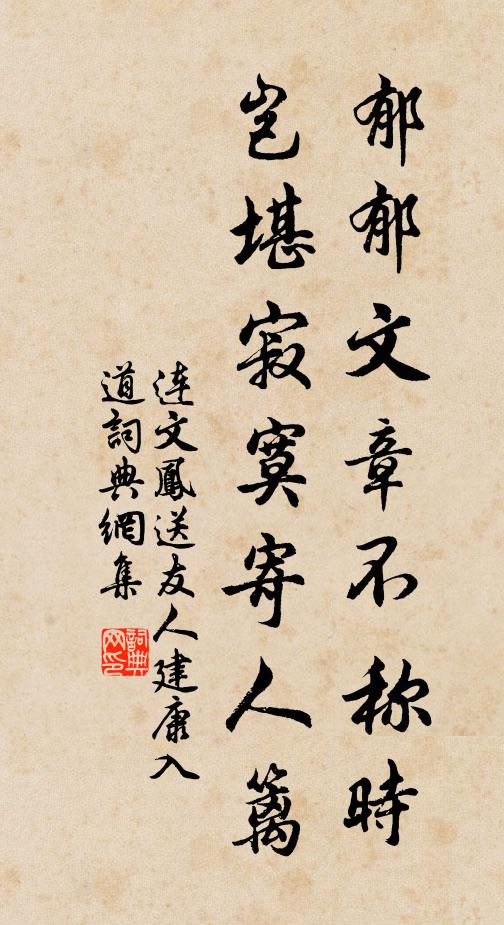 郁郁文章不称時
岂堪寂寞寄人篱
连文鳳送友人建康入
道詞典網集
詞典网印